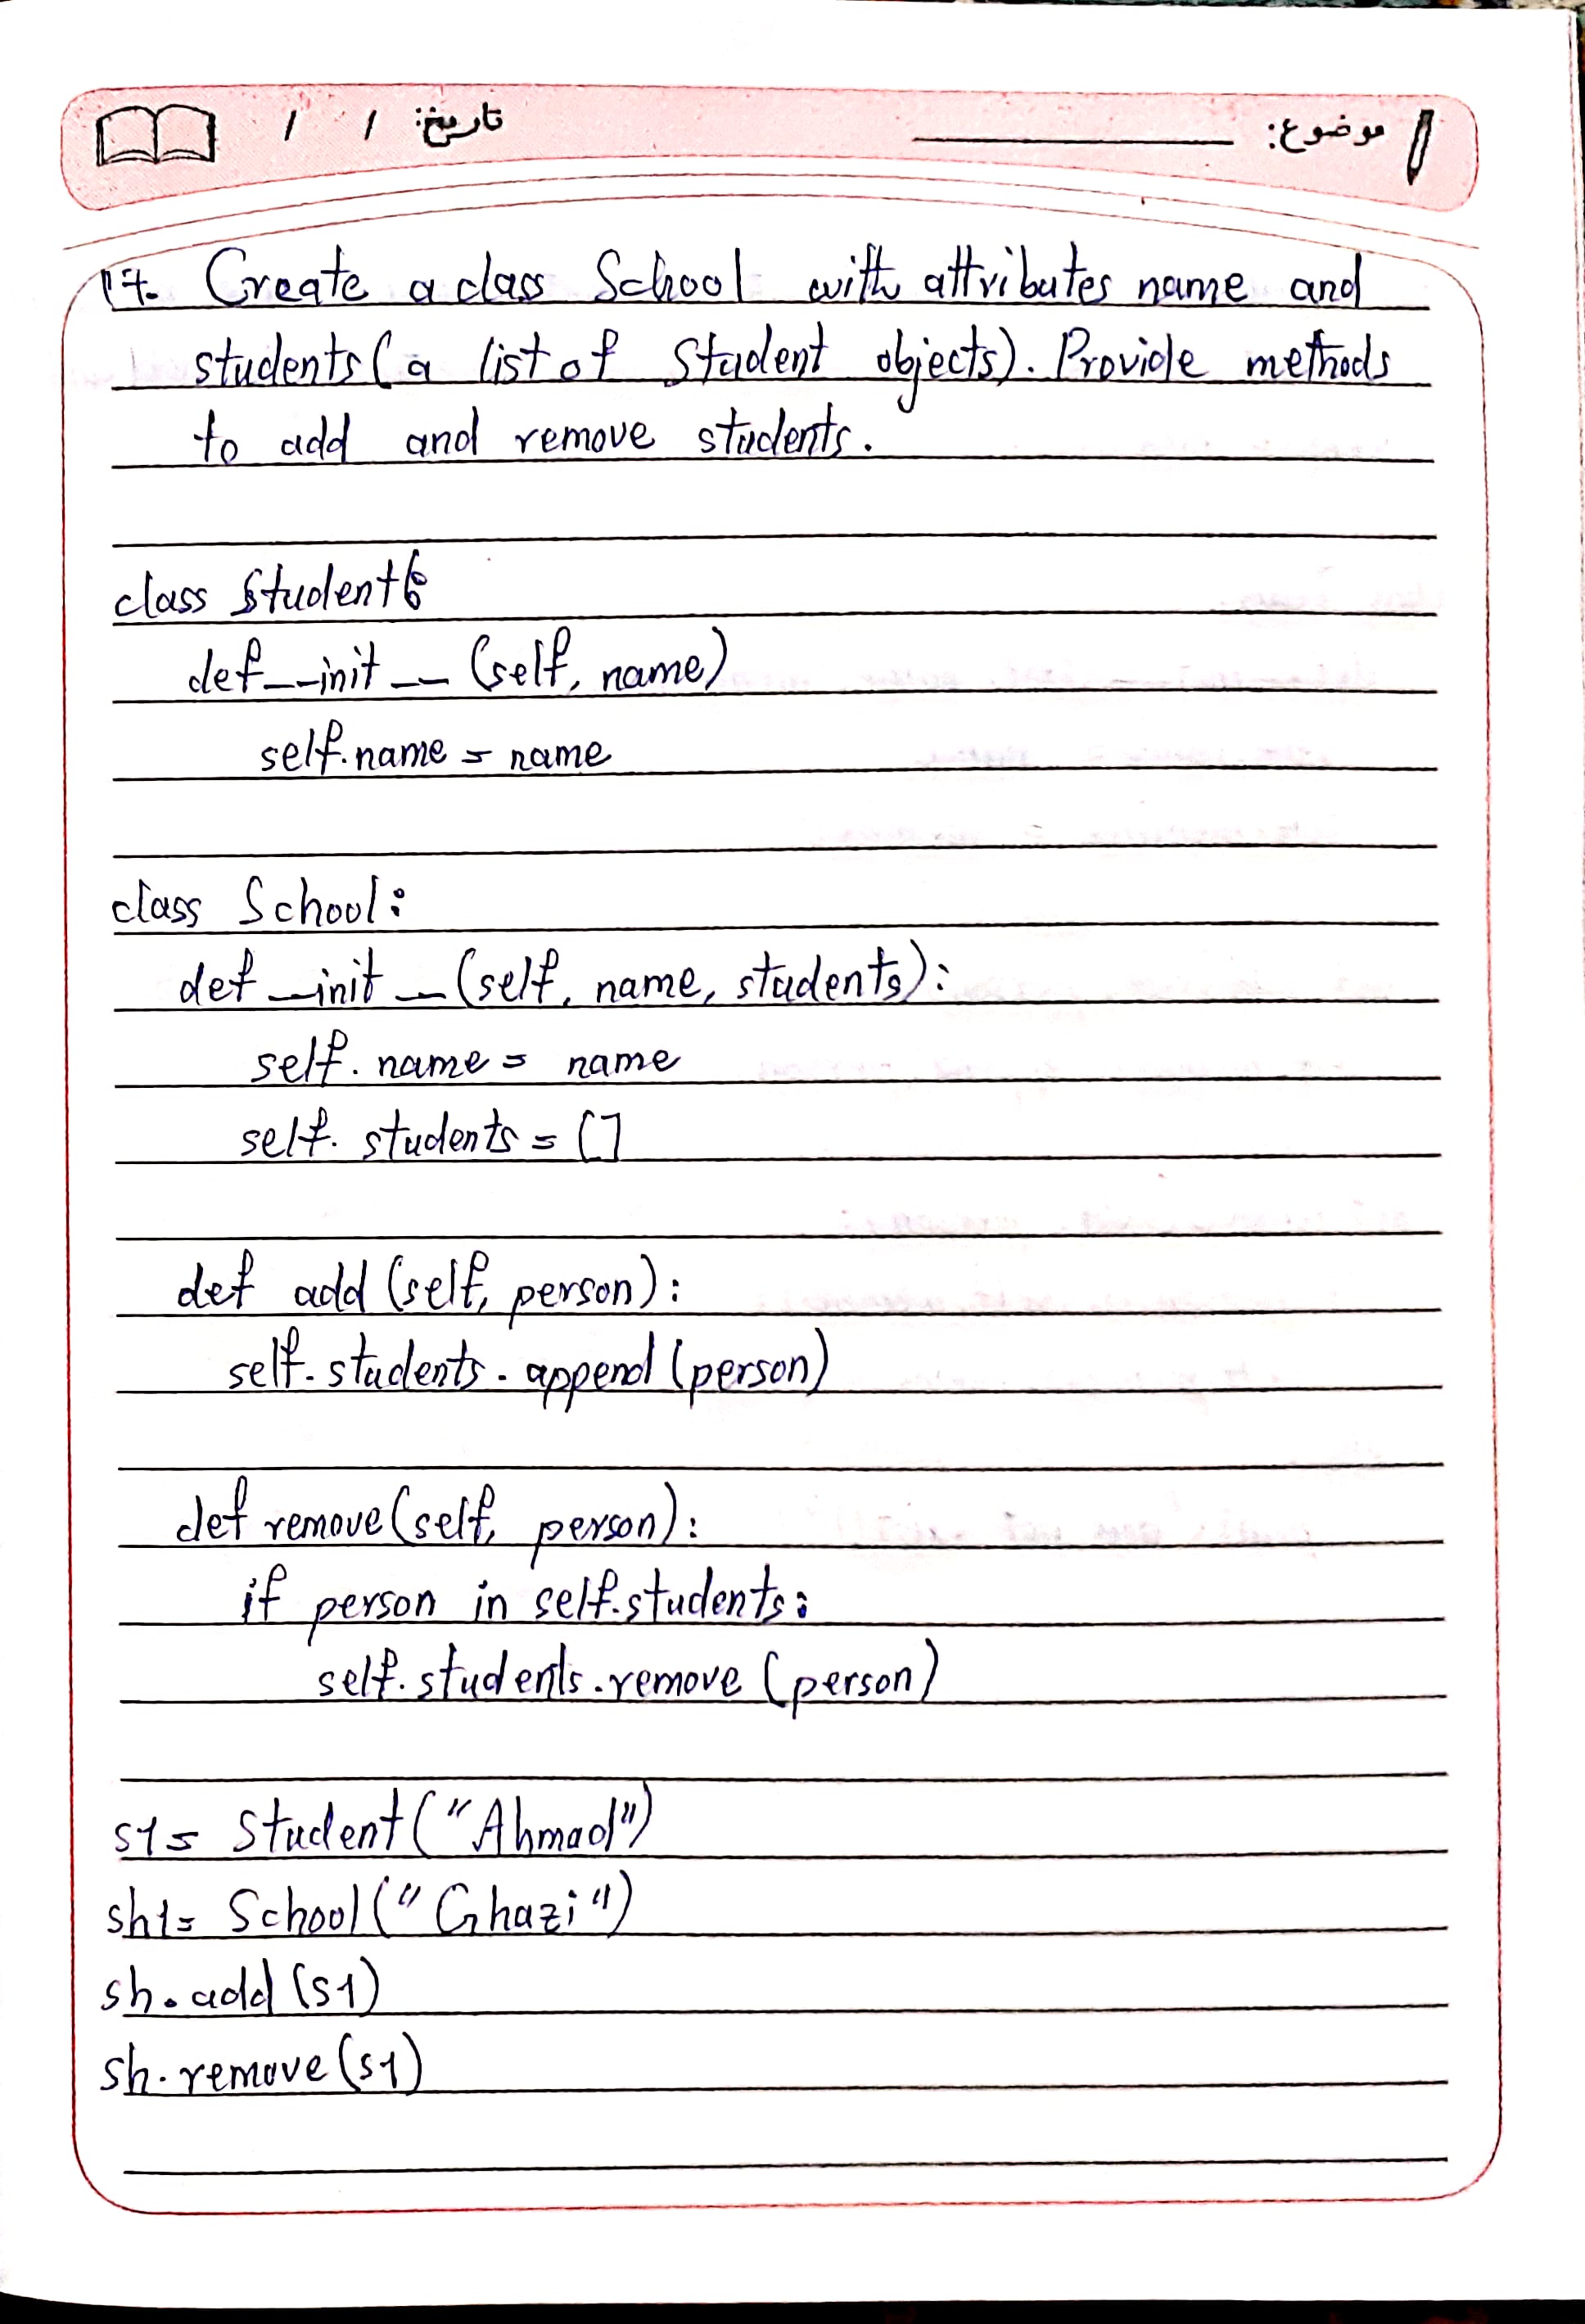 موضوع: تاریخ: / /
17. Create a class School with attributes name and
students (a list of Student objects). Provide methods
to add and remove students.
class Student:
def __init__ (self, name)
self.name = name
class School:
def _init_ (self, name, students):
self. name = name
self. students = []
def add (self, person):
self.students.append (person)
def remove (self, person):
if person in self.students:
self.students.remove (person)
s1 = Student ("Ahmad")
sh1 = School ("Ghazi")
sh.add (s1)
sh.remove (s1)